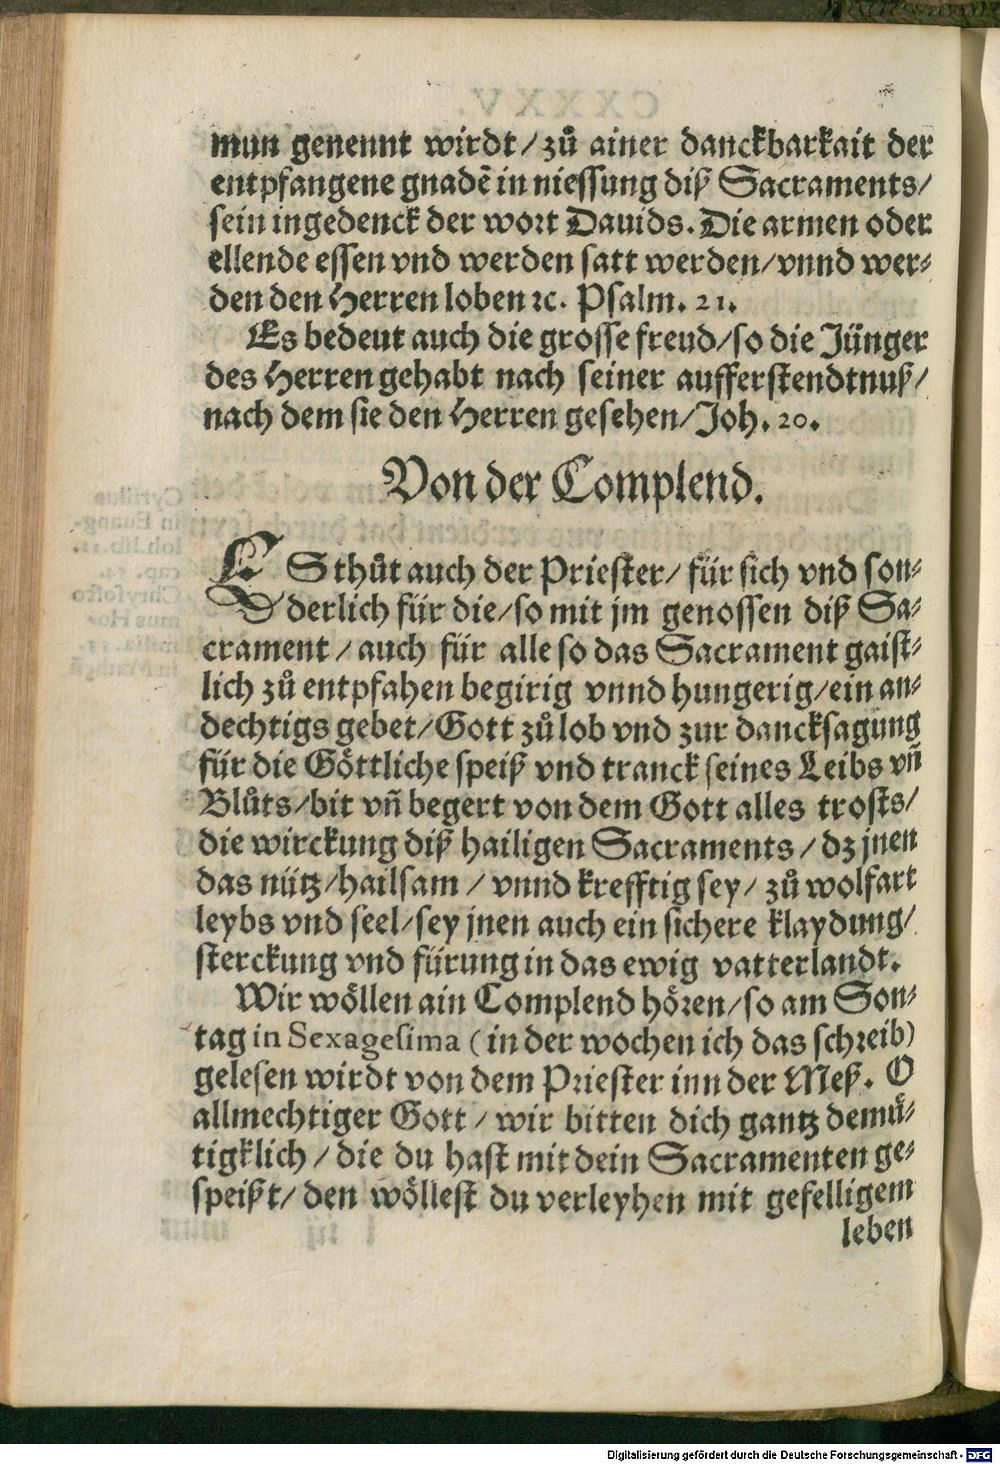 mun genennt wirdt/zů ainer danckbarkait der
entpfangene gnadē in niessung diß Sacraments/
sein ingedenck der wort Dauids. Die armen oder
ellende essen vnd werden satt werden/vnnd wer-
den den Herren loben ꝛc. Psalm. 21.
Es bedeut auch die grosse freud/so die Jünger
des Herren gehabt nach seiner aufferstendtnuß/
nach dem sie den Herren gesehen/Joh. 20.
Von der Complend.
ES thůt auch der Priester/ für sich vnd son-
derlich für die/so mit jm genossen diß Sa-
crament/auch für alle so das Sacrament gaist-
lich zů entpfahen begirig vnnd hungerig/ein an-
dechtigs gebet/Gott zů lob vnd zur dancksagung
für die Göttliche speiß vnd tranck seines Leibs vñ
Blůts/bit vñ begert von dem Gott alles trosts/
die wirckung diß hailigen Sacraments/dz jnen
das nütz/hailsam/vnnd krefftig sey/zů wolfart
leybs vnd seel/sey jnen auch ein sichere klaydung/
sterckung vnd fürung in das ewig vatterlandt.
Wir wöllen ain Complend hören/so am Son-
tag in Sexagesima (in der wochen ich das schreib)
gelesen wirdt von dem Priester inn der Meß. O
allmechtiger Gott/wir bitten dich gantz demů-
tigklich/die du hast mit dein Sacramenten ge-
speißt/den wöllest du verleyhen mit gefelligem
leben
Digitalisierung gefördert durch die Deutsche Forschungsgemeinschaft - DFG